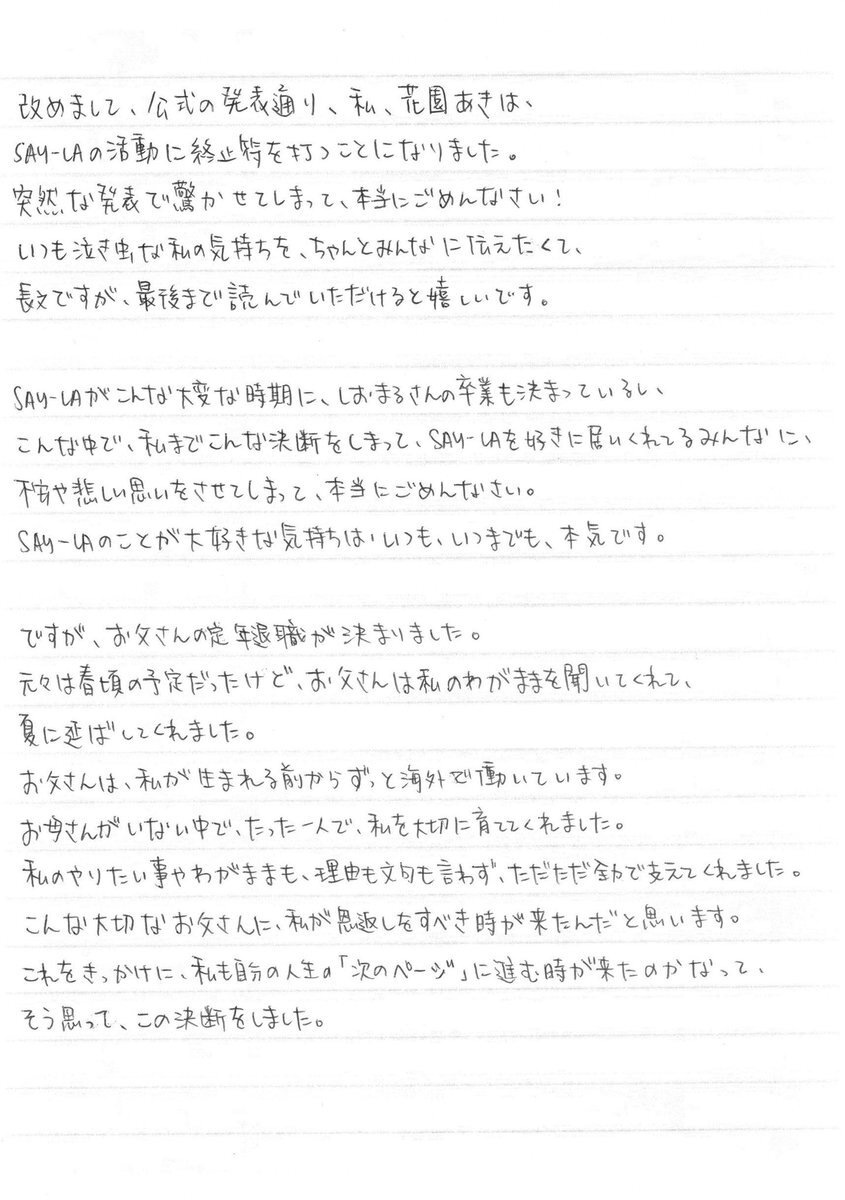 改めまして、公式の発表通り、私、花園あきは、
SAY-LAの活動に終止符を打つことになりました。
突然な発表で驚かせてしまって、本当にごめんなさい！
いつも泣き虫な私の気持ちを、ちゃんとみんなに伝えたくて、
長文ですが、最後まで読んでいただけると嬉しいです。
SAY-LAがこんな大変な時期に、しおまるさんの卒業も決まっているし、
こんな中で、私までこんな決断をしまって、SAY-LAを好きに居いくれてるみんなに、
不安や悲しい思いをさせてしまって、本当にごめんなさい。
SAY-LAのことが大好きな気持ちは、いつも、いつまでも、本気です。
ですが、お父さんの定年退職が決まりました。
元々は春頃の予定だったけど、お父さんは私のわがままを聞いてくれて、
夏に延ばしてくれました。
お父さんは、私が生まれる前からずっと海外で働いています。
お母さんがいない中で、たった一人で、私を大切に育ててくれました。
私のやりたい事やわがままも、理由も文句も言わず、ただただ全力で支えてくれました。
こんな大切なお父さんに、私が恩返しをすべき時が来たんだと思います。
これをきっかけに、私も自分の人生の「次のページ」に進む時が来たのかなって、
そう思って、この決断をしました。